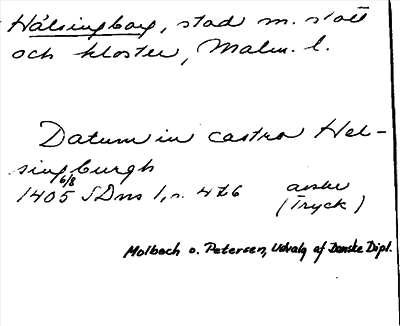 Hälsingborg, stad m. slott
och kloster, Malm. l.
Datum in castro Hel-
singburgh
6/8
1405 SDns 1, n. 476 avskr
(Tryck)
Molbech o. Petersen, Udvalg af Danske Dipl.